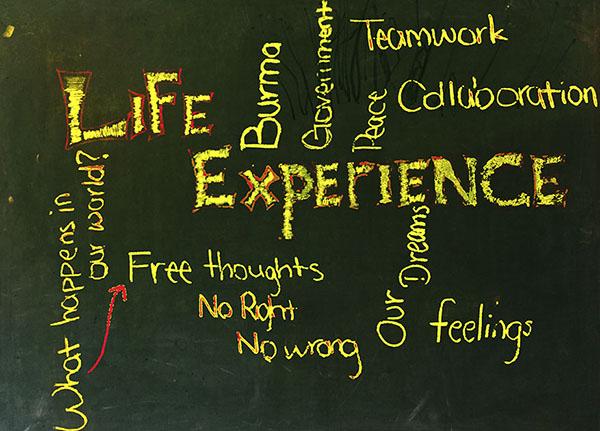 LiFE
EXPERIENCE
Burma
Government
Peace
Teamwork
Collaboration
What happens in
our world?
Free thoughts
No Right
No wrong
Our Dreams
feelings